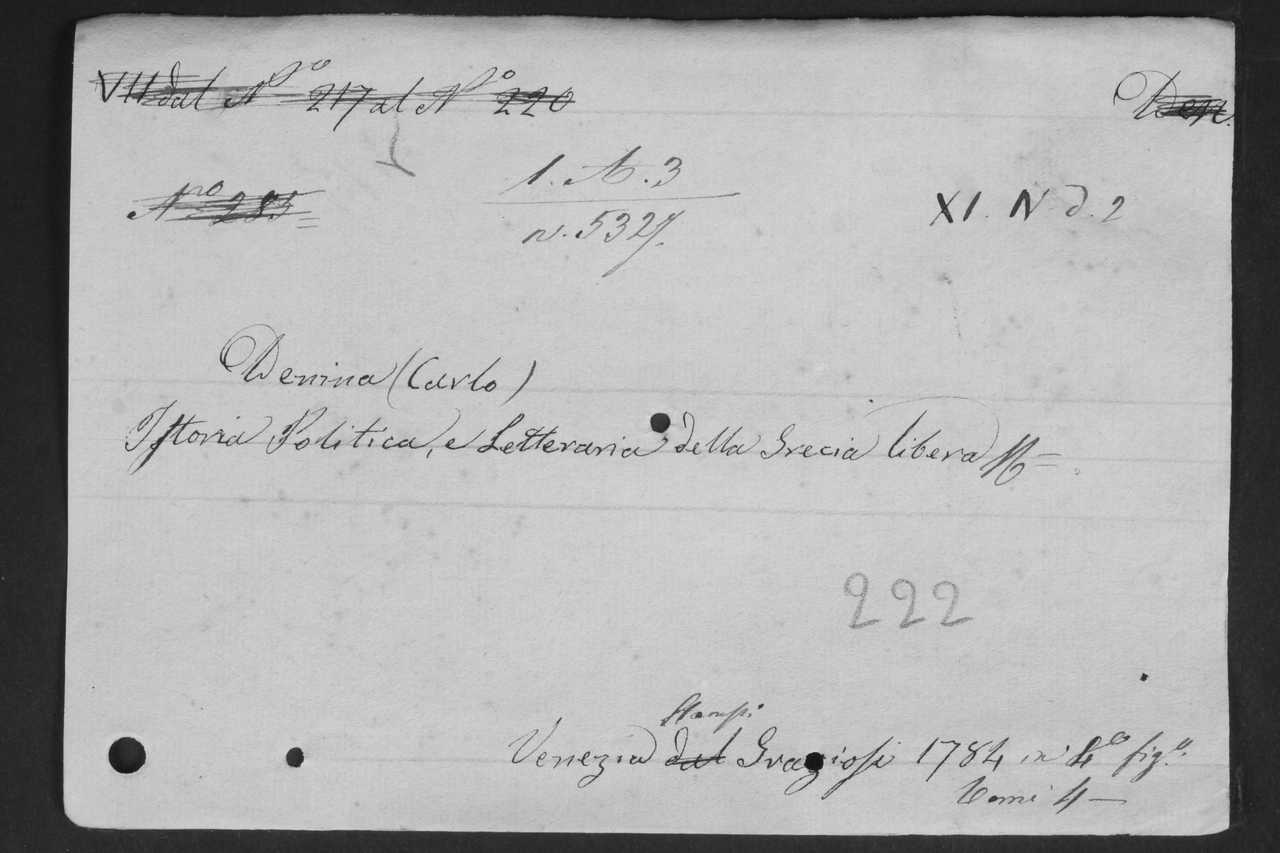 VII dal Nº 217 al Nº 220
Den.
Nro 285
1. A. 3
n. 5327.
XI. N. d. 2
Denina (Carlo)
Istoria Politica, e Letteraria della Grecia libera
222
Stamp:
Venezia dal Graziosi 1784 in 4º fig.º:
Tomi 4 —